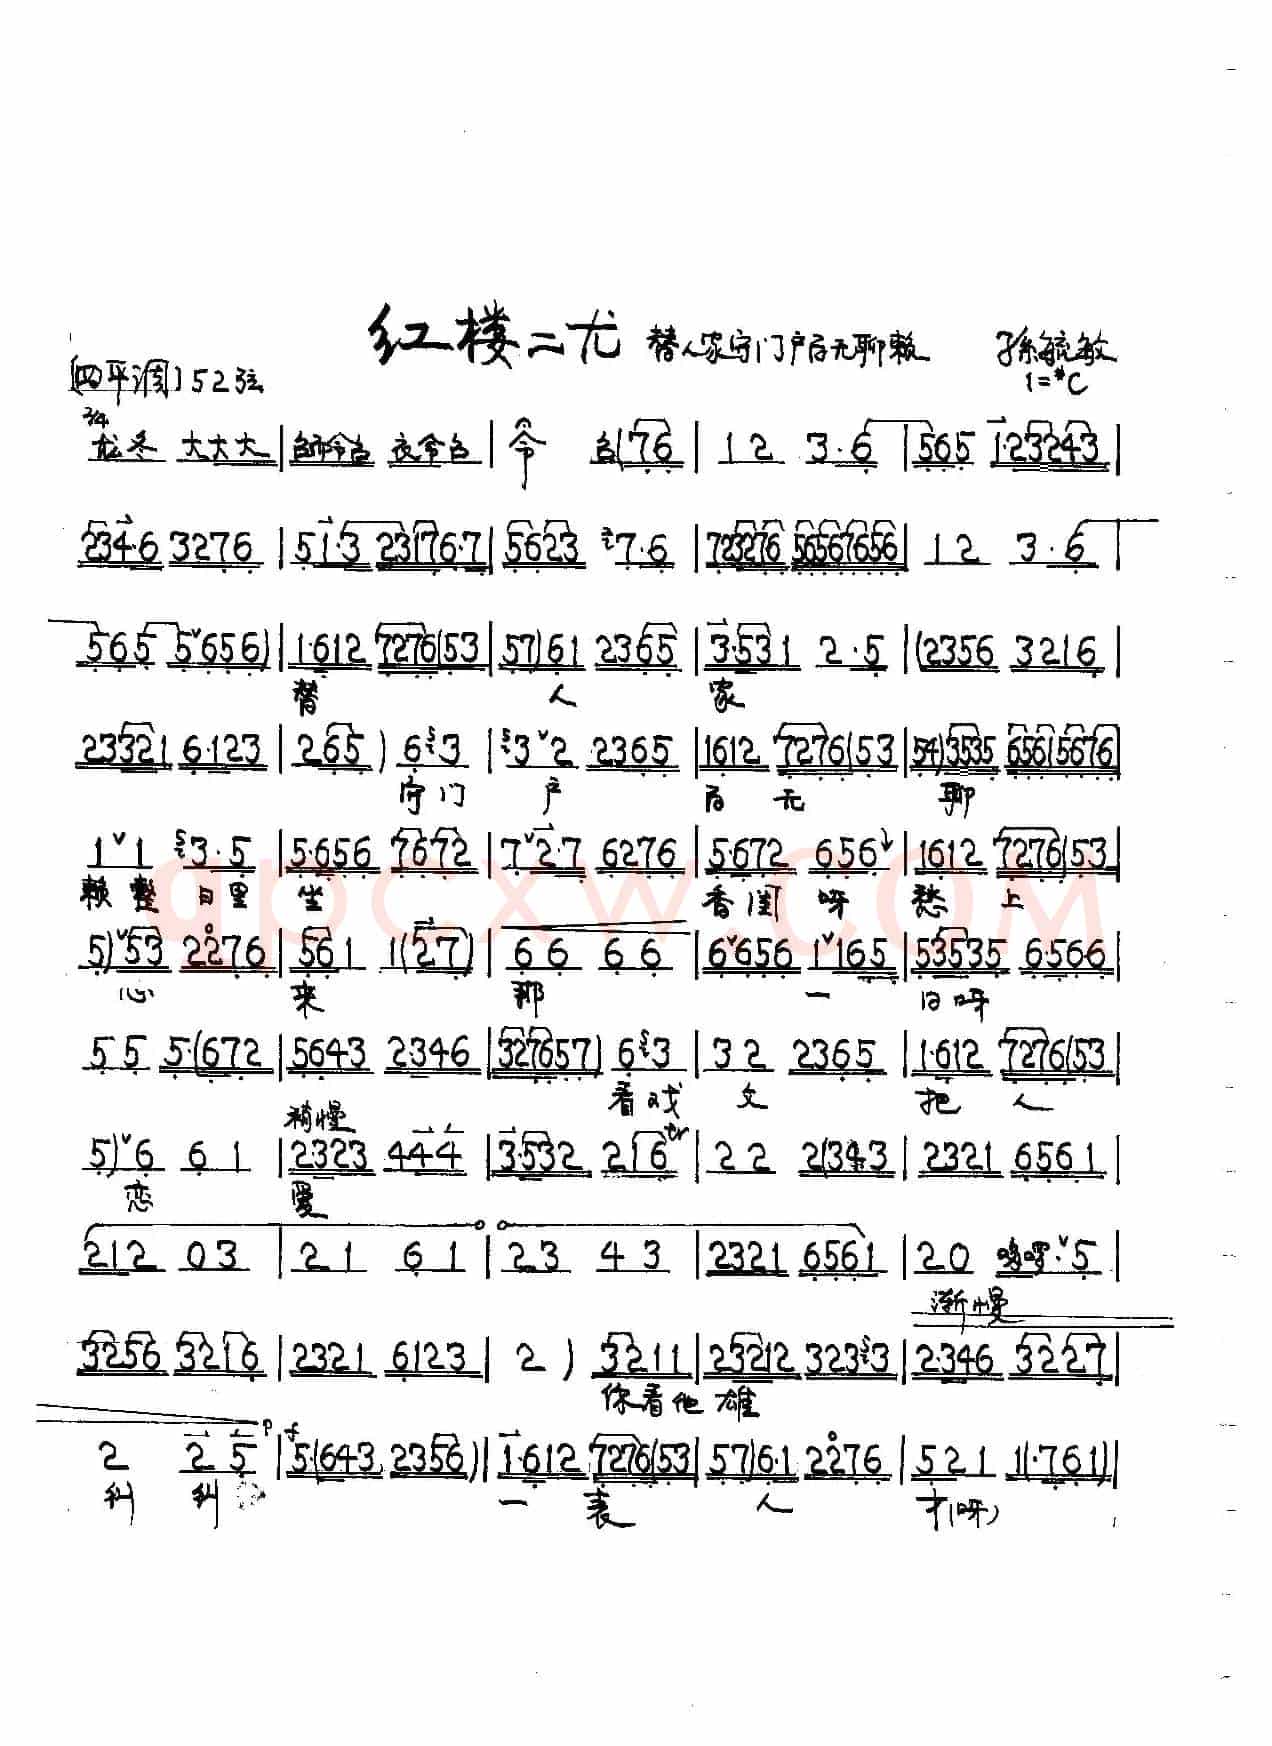 红楼二尤 替人家守门户百无聊赖 孫毓敏
[四平调] 52弦 1=#C
2/4
龙冬 大大大 | 台 | 令 台(76 | 12 3·6 | 565 1·23243 |
234·6 3276 | 51·3 23176·7 | 5623 27·6 | 723276 56567656 | 12 3·6 |
565 5ˇ656) | 1·612 7276(53 | 57)61 2365 | 3·531 2·5 | (2356 3216 |
替 人 家
23321 6·123 | 265) 6 5 3 | 5 3ˇ2 2365 | 1612 7276(53 | 54)3535 656(15676 |
守门 户 百 无 聊
1ˇ1 5 3·5 | 5·656 7672 | 7ˇ2·7 6276 | 5·672 656 | 1612 7276(53 |
赖 整 日里 坐 香闺 呀 愁 上
qpcxw.com
5)ˇ53 2276 | 561 1(27) | 66 66 | 6ˇ656 1ˇ165 | 53535 6·566 |
心 来 那 一 日呀
55 5·(672 | 5643 2346 | 327657) 6 5 3 | 32 2365 | 1·612 7276(53 |
看戏 文 把 人
稍慢
5)ˇ6 61 | 2323 444 | 3·532 216 tr | 22 2(343 | 2321 6561 |
恋 爱
212 03 | 21 61 | 23 43 | 2321 6561 | 20 ˇ5 |
渐慢
3256 3216 | 2321 6123 | 2 ) 3211 | 23212 323 5 3 | 2346 3227 |
你看他 雄
2 25 p | f 5·(643 2356) | 1·612 7276(53 | 57)6·1 2276 | 521 1(·761) |
纠 纠 一 表 人 才(呀)